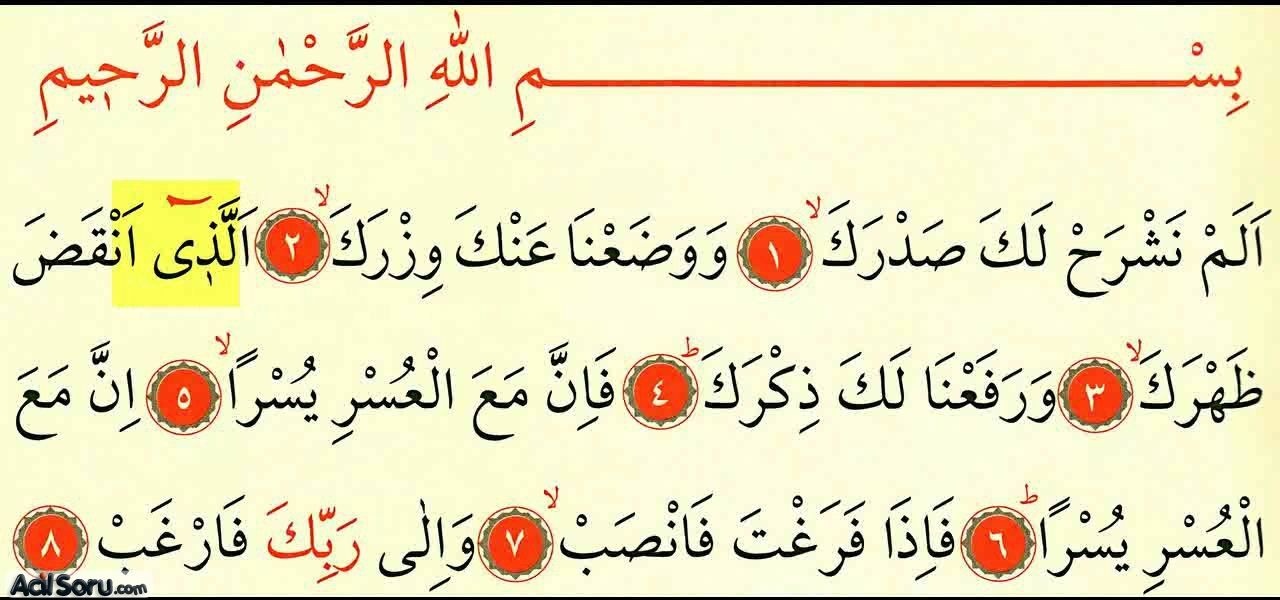 بِسْــــــــــــــمِ اللّٰهِ الرَّحْمٰنِ الرَّح۪يمِ
اَلَمْ نَشْرَحْ لَكَ صَدْرَكَۙ ﴿١﴾ وَوَضَعْنَا عَنْكَ وِزْرَكَۙ ﴿٢﴾ اَلَّذ۪ٓى اَنْقَضَ
ظَهْرَكَۙ ﴿٣﴾ وَرَفَعْنَا لَكَ ذِكْرَكَۜ ﴿٤﴾ فَاِنَّ مَعَ الْعُسْرِ يُسْرًاۙ ﴿٥﴾ اِنَّ مَعَ
الْعُسْرِ يُسْرًاۜ ﴿٦﴾ فَاِذَا فَرَغْتَ فَانْصَبْۙ ﴿٧﴾ وَاِلٰى رَبِّكَ فَارْغَبْ ﴿٨﴾
AcilSoru.com